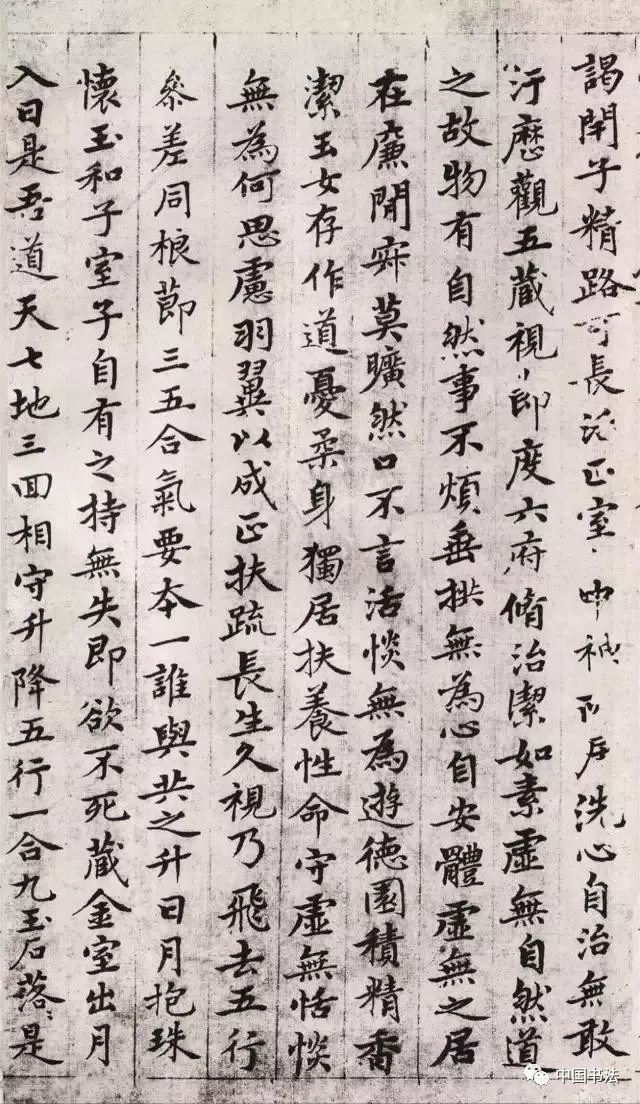 謁閇子精路可長活正室中神所居洗心自治無敢
汙歷觀五藏視節度六府脩治潔如素虛無自然道
之故物有自然事不煩垂拱無為心自安體虛無之居
在廉閒寂莫曠然口不言活惔無為遊德園積精香
潔玉女存作道憂柔身獨居扶養性命守虛無恬惔
無為何思慮羽翼以成正扶疏長生久視乃飛去五行
叅差同根節三五合氣要本一誰與共之升日月抱珠
懷玉和子室子自有之持無失即欲不死藏金室出月
入日是吾道天七地三回相守升降五行一合九玉石落〻是
中国书法